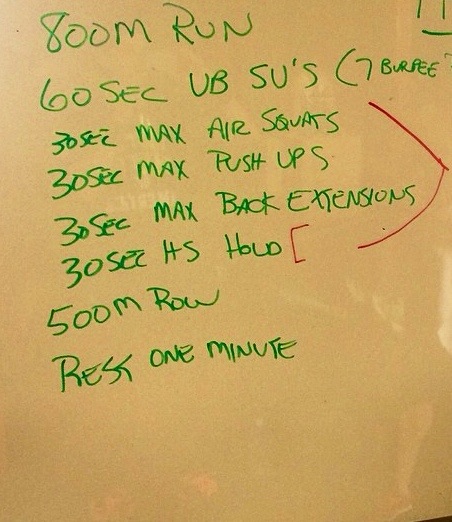 800M RUN
60 SEC UB SU'S (7 BURPEE
30SEC MAX AIR SQUATS
30SEC MAX PUSH UPS
30SEC MAX BACK EXTENSIONS
30SEC HS HOLD [
500M ROW
REST ONE MINUTE